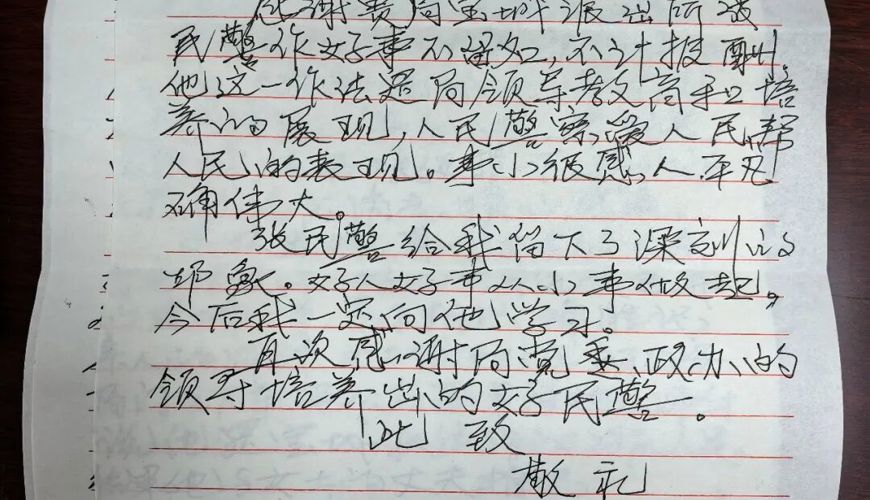 感谢贵局宝城派出所张
民警作好事不留名,不计报酬。
他这一作法是局领导教育和培
养的展现,人民警察爱人民,帮
人民的表现。事小很感人,平凡
确伟大。
张民警给我留下了深刻的
印象。好人好事从小事做起。
今后我一定向他学习。
再次感谢局党委、政办的
领导培养出的好民警。
此 致
敬礼